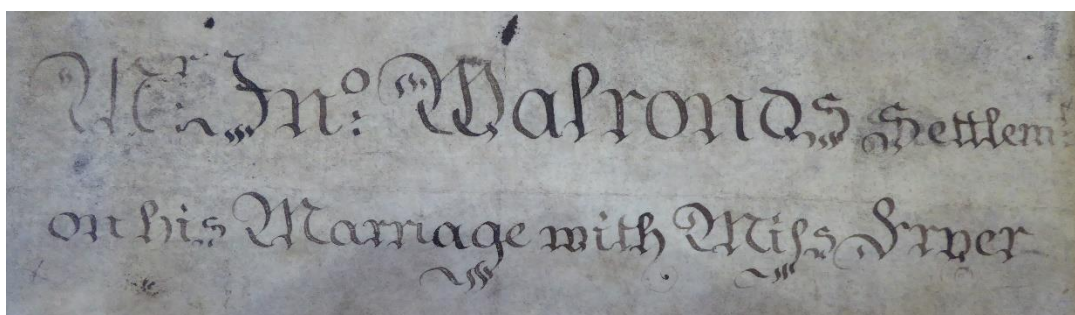 Mr. Jno. Walronds Settlemt.
on his Marriage with Miſs Fryer